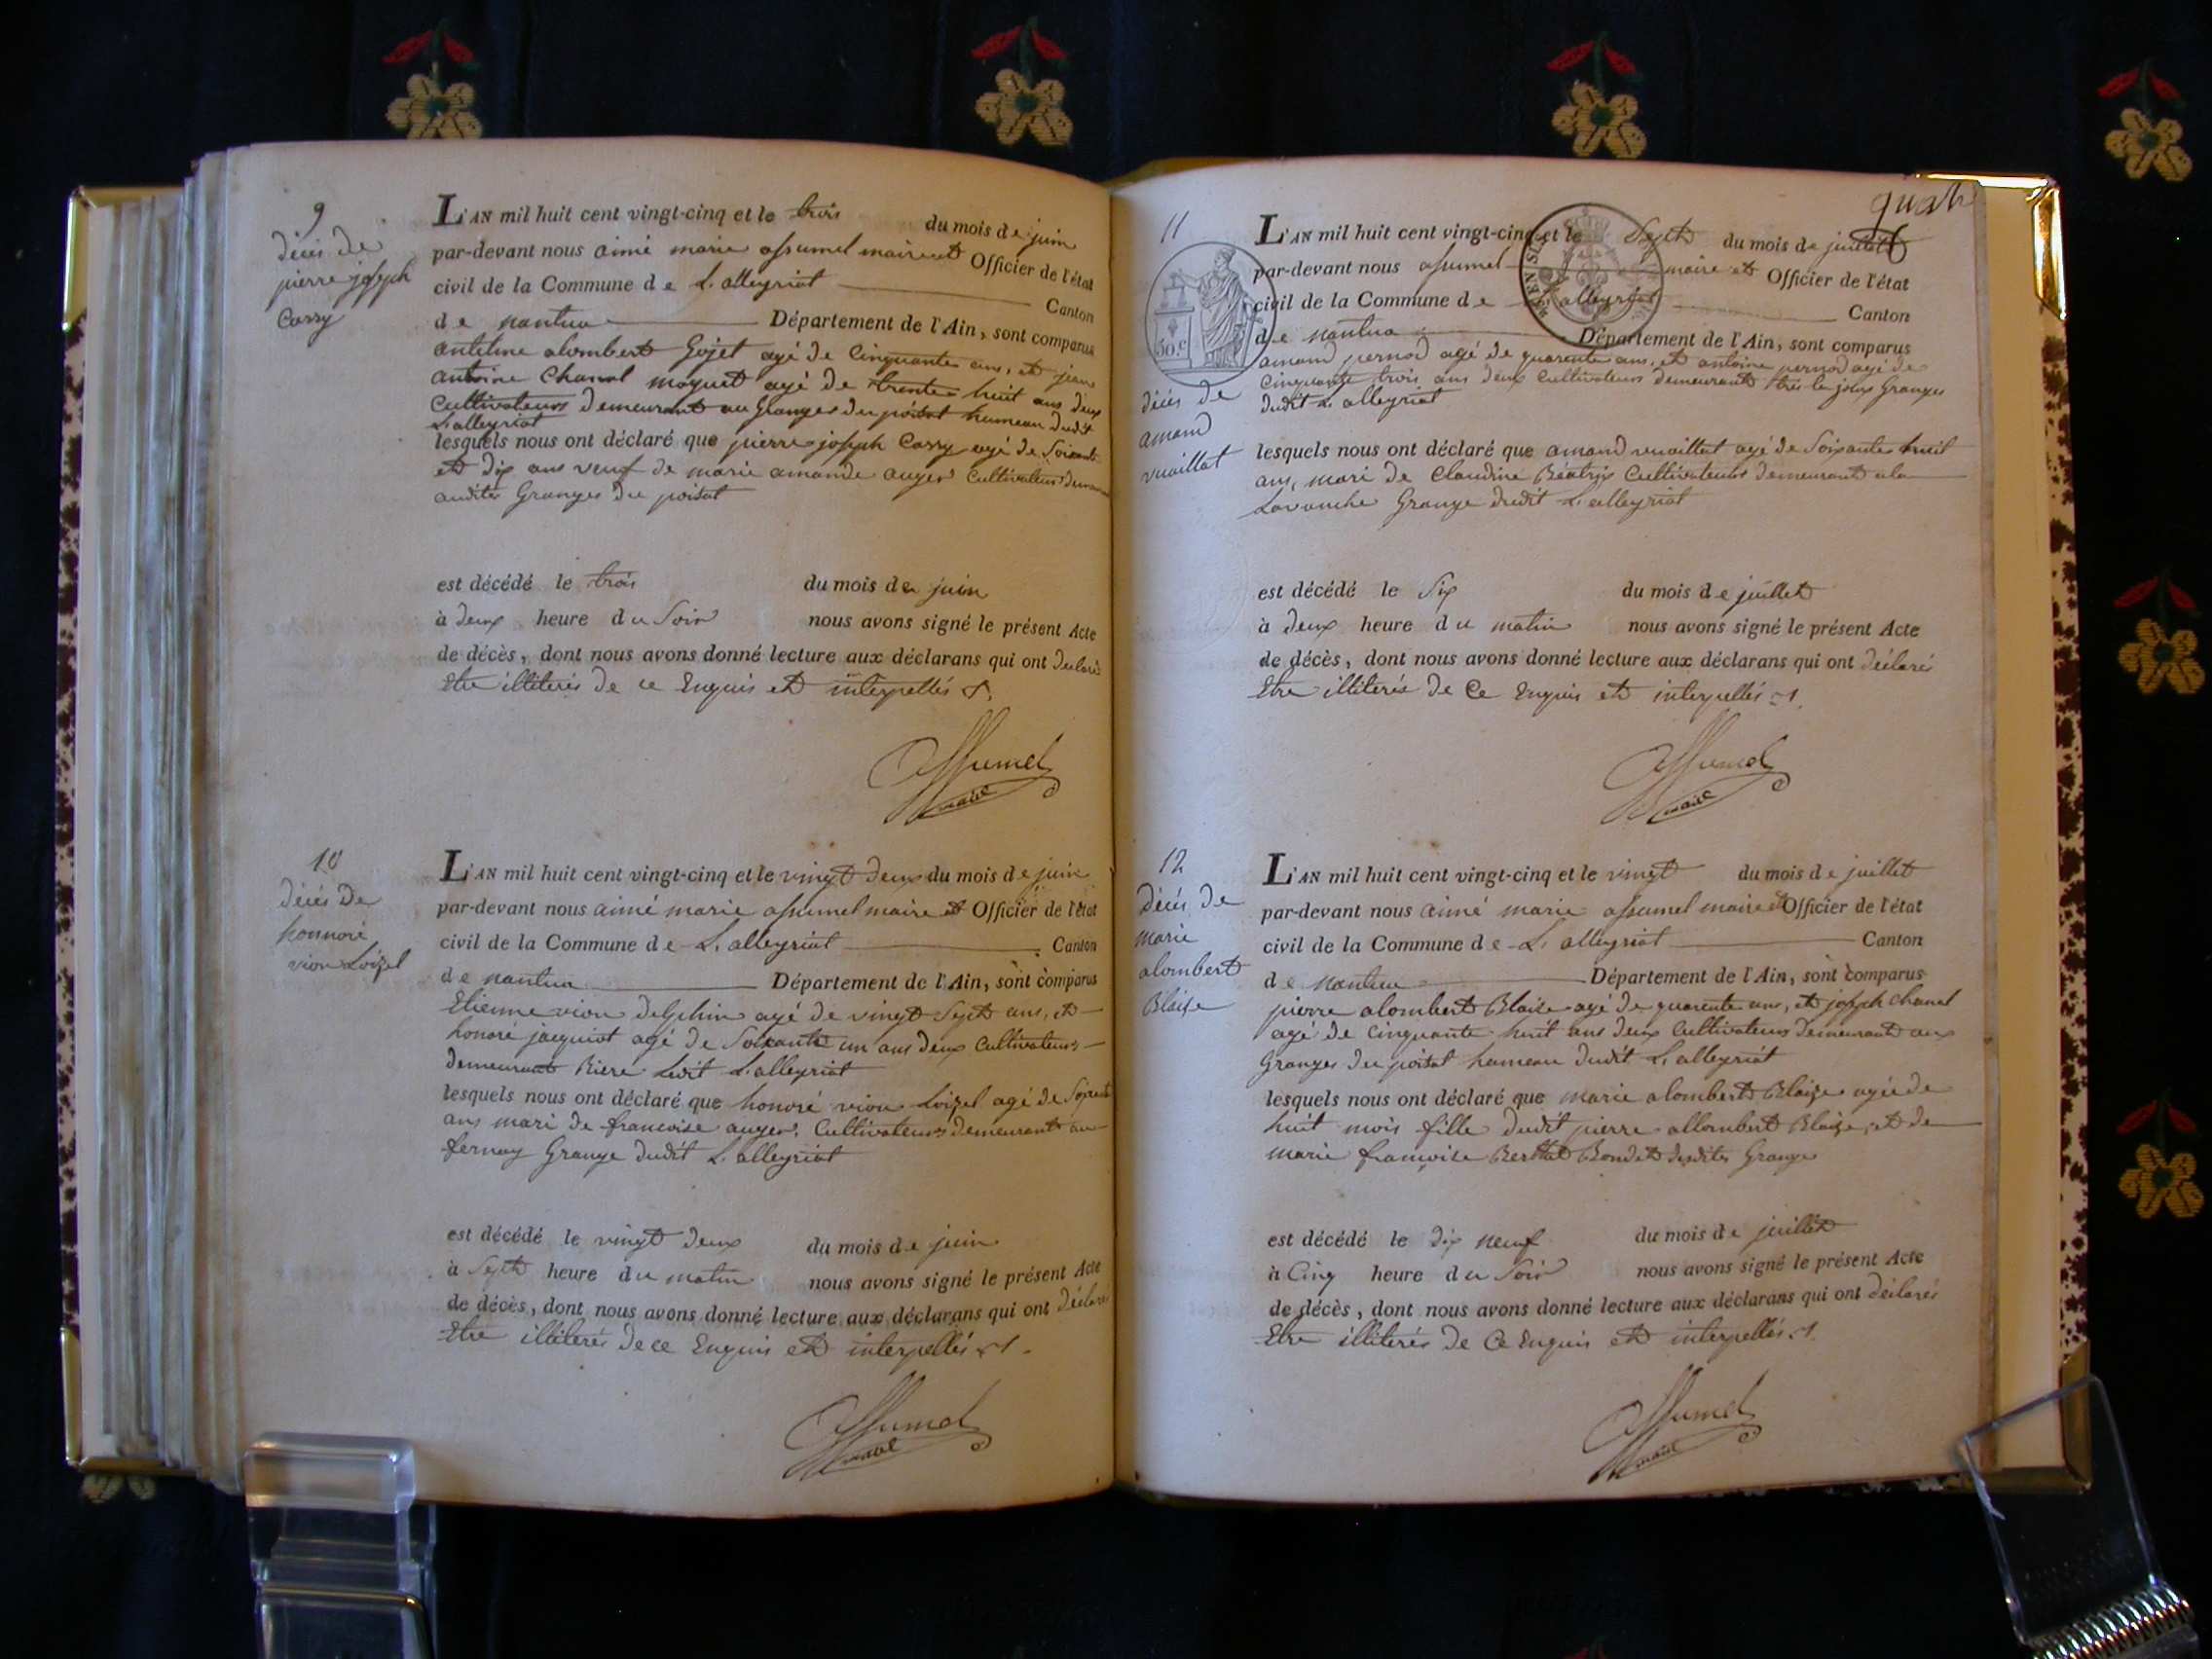 9
décès de
pierre joseph
Carry
L'AN mil huit cent vingt-cinq et le trois du mois de juin
par-devant nous aimé marie assumel maire et Officier de l'état
civil de la Commune de L'alleyriat Canton
de nantua Département de l'Ain, sont comparus
antelme alombert Gojet agé de Cinquante ans, et jean
antoine Chanal moquet agé de trente huit ans deux
Cultivateurs demeurant au Granges du poisat hameau dudit
L'alleyriat
lesquels nous ont déclaré que pierre joseph Carry agé de Soixante
et dix ans veuf de marie amande auger Cultivateur
audites Granges du poisat
est décédé le trois du mois de juin
à deux heure du Soir nous avons signé le présent Acte
de décès, dont nous avons donné lecture aux déclarans qui ont declarés
Etre illiterés de ce Enquis et interpellés
Assumel
maire
10
décés De
honnoré
vion Loizel
L'AN mil huit cent vingt-cinq et le vingt deux du mois de juin
par-devant nous aimé marie assumel maire et Officier de l'état
civil de la Commune de L'alleyriat Canton
de nantua Département de l'Ain, sont comparus
Etienne vion delphin agé de vingt Sept ans, et
honoré jacquiot agé de Soixante un ans deux Cultivateurs
demeurant Riere Ledit L'alleyriat
lesquels nous ont déclaré que honoré vion Loizel agé de Soixante
ans mari de francoise auger, Cultivateurs demeurant au
fernay Grange dudit L'alleyriat
est décédé le vingt deux du mois de juin
à Sept heure du matin nous avons signé le présent Acte
de décès, dont nous avons donné lecture aux déclarans qui ont déclarés
Etre illiterés de ce Enquis et interpellés
Assumel
maire
quatre
11
50.c
décés de
amand
vuaillat
L'AN mil huit cent vingt-cinq et le Sept du mois de juillet
par-devant nous assumel maire et Officier de l'état
civil de la Commune de L'alleyriat Canton
de nantua Département de l'Ain, sont comparus
amand pernod agé de quarente ans, et antoine pernod agé de
Cinquante trois ans deux Cultivateurs demeurant Granges
dudit L'alleyriat
lesquels nous ont déclaré que amand vuaillat agé de Soixante huit
ans, mari de Claudine Béatrix Cultivateurs demeurant a la
Lavanche Grange dudit L'alleyriat
est décédé le Six du mois de juillet
à deux heure du matin nous avons signé le présent Acte
de décès, dont nous avons donné lecture aux déclarans qui ont déclarés
Etre illiterés de Ce Enquis et interpellés
Assumel
maire
12
Décés De
marie
alombert
Blaise
L'AN mil huit cent vingt-cinq et le vingt du mois de juillet
par-devant nous aimé marie assumel maire et Officier de l'état
civil de la Commune de L'alleyriat Canton
de nantua Département de l'Ain, sont comparus
pierre alombert Blaise agé de quarente ans, et joseph Chanal
agé de Cinquante huit ans deux Cultivateurs Demeurant aux
Granges du poisat hameau dudit L'alleyriat
lesquels nous ont déclaré que marie alombert Blaise agée de
huit mois fille dudit pierre allombert Blaise, et de
marie francoise Berthet Bondet desdites Granges
est décédé le dix neuf du mois de juillet
à Cinq heure du Soir nous avons signé le présent Acte
de décès, dont nous avons donné lecture aux déclarans qui ont déclarés
Etre illiterés de Ce Enquis et interpellés
Assumel
maire